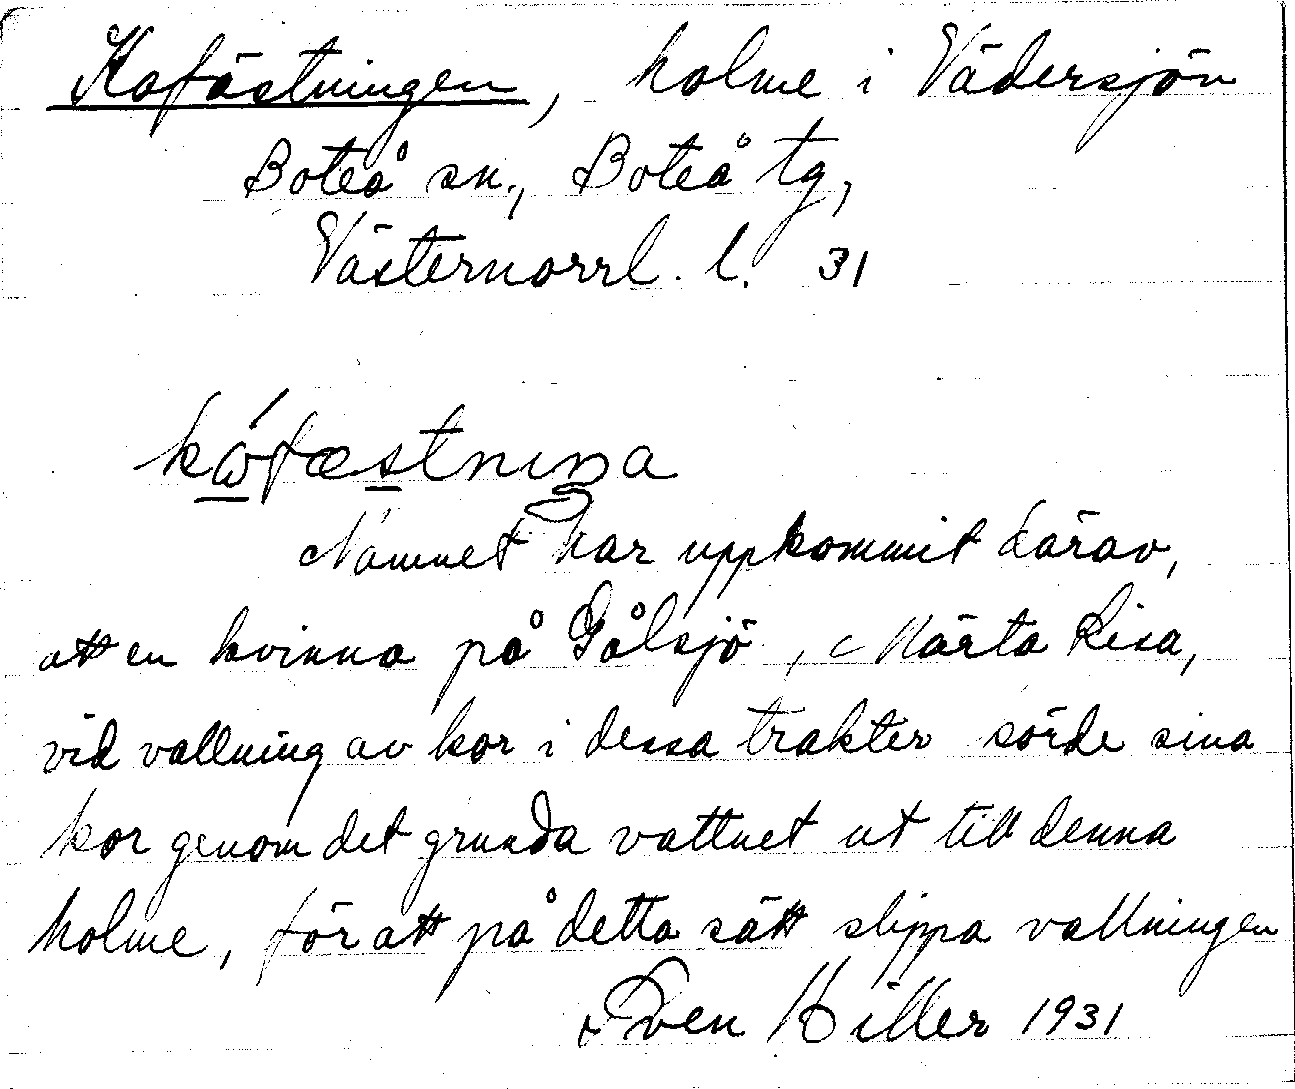 Kofästningen, holme i Vädersjön
Boteå sn., Boteå tg,
Västernorrl. l. 31
kὼfæstnıŋa
Namnet har uppkommit därav,
att en kvinna på Gålsjö, Märta Lisa,
vid vallning av kor i dessa trakter körde sina
kor genom det grunda vattnet ut till denna
holme, för att på detta sätt slippa vallningen
Sven Hiller 1931